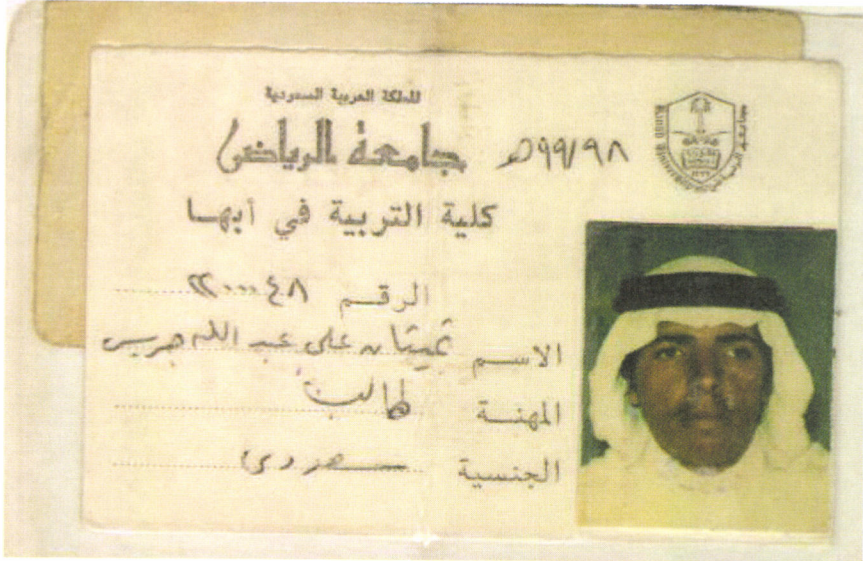 المملكة العربية السعودية
جامعة الرياض ٩٩/٩٨هـ
كلية التربية في أبها
الرقم ٢٢٠٠٠٤٨
الاسم علي عبد الله
المهنة طالب
الجنسية سعودي